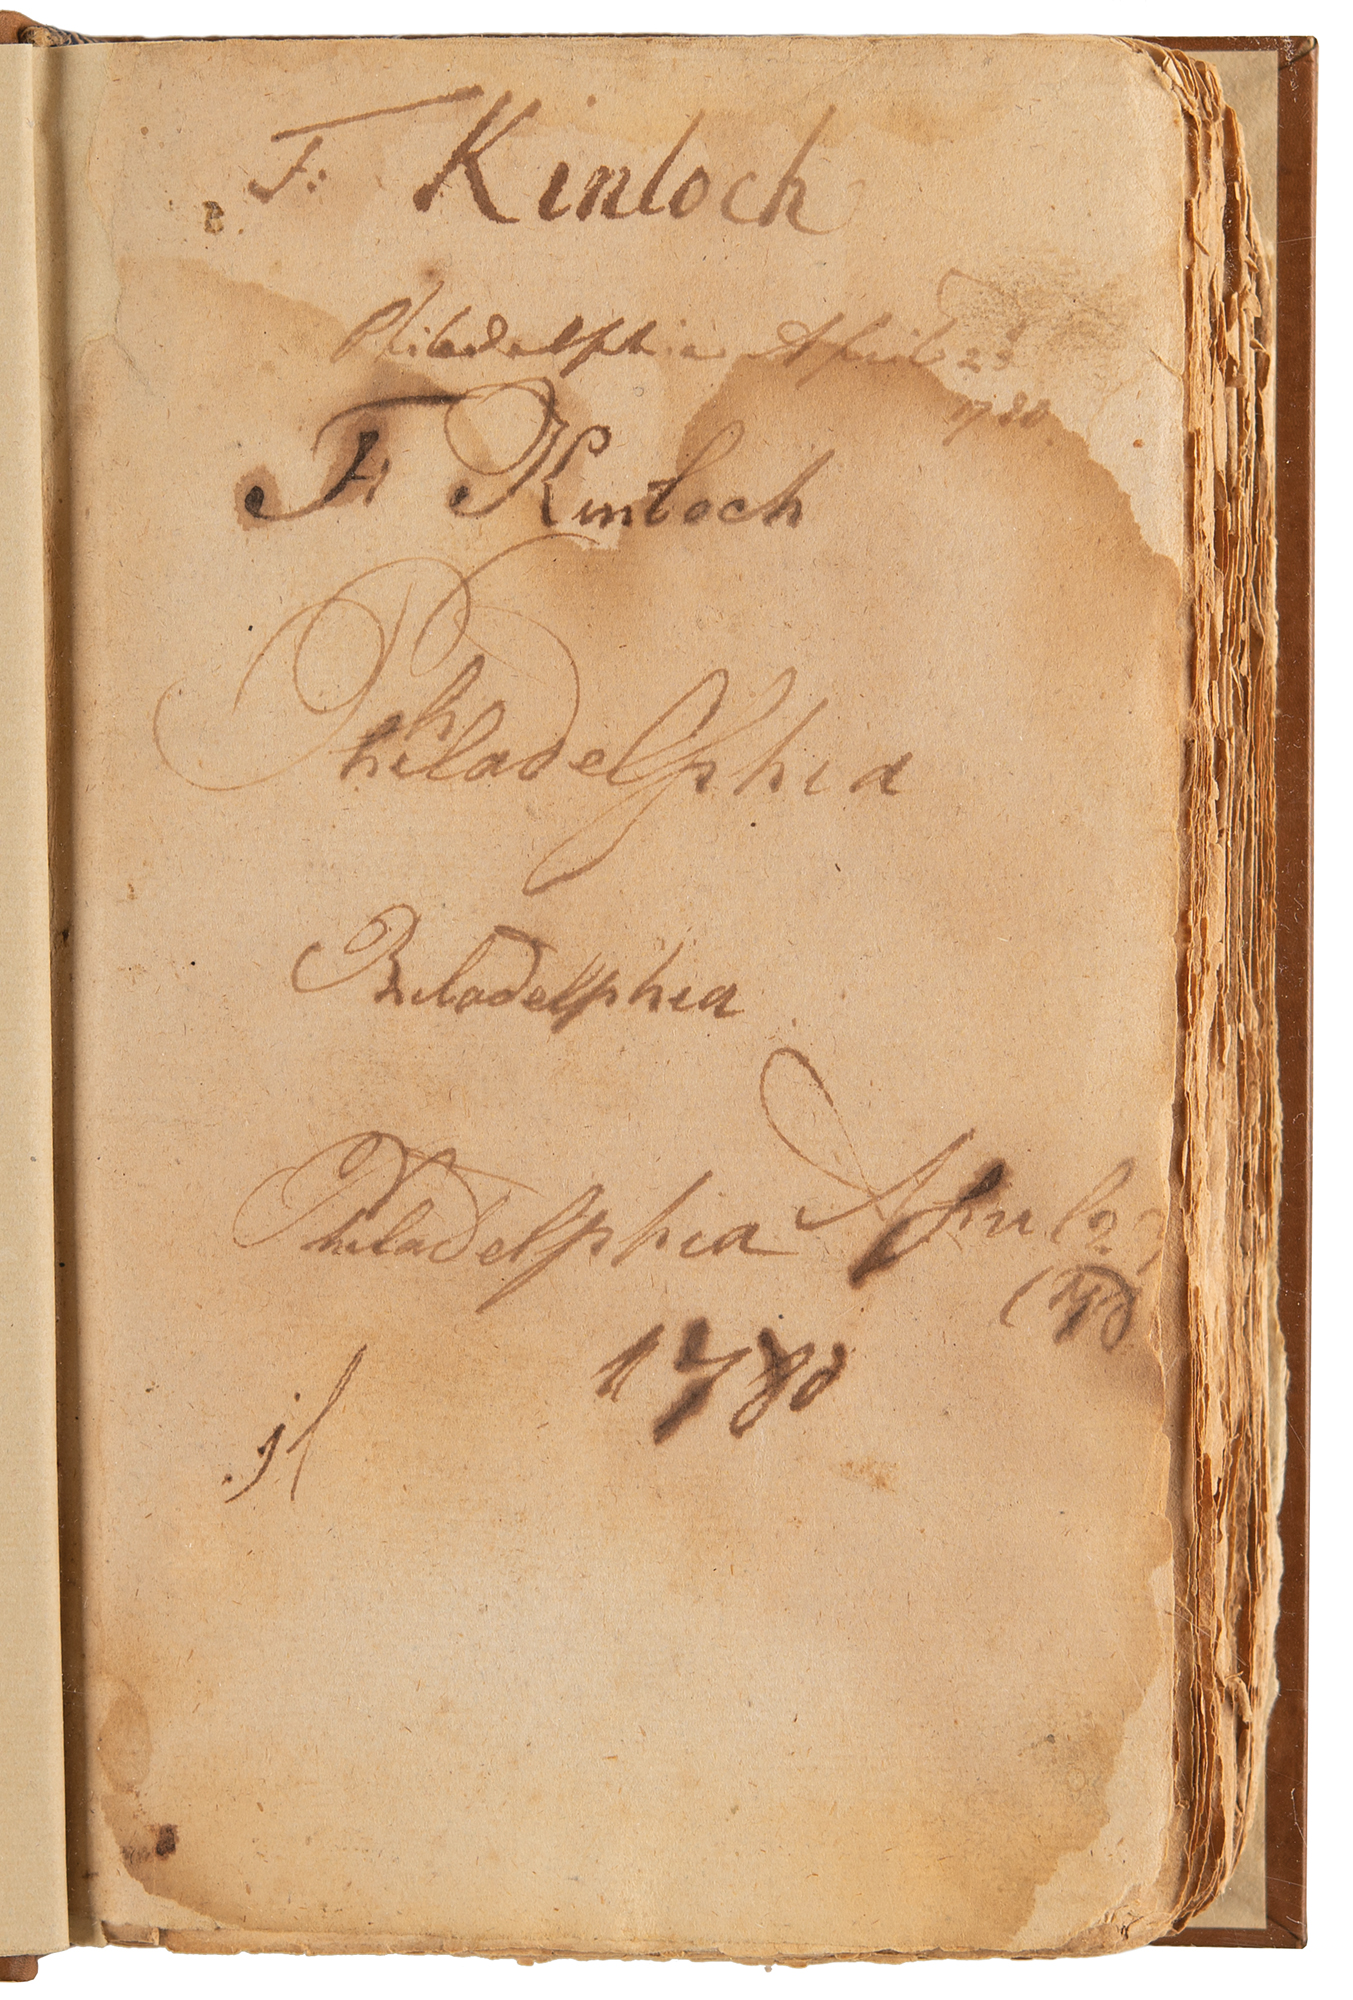 F: Kinloch
B.
Philadelphia April 23d
1780.
F: Kinloch
h
Philadelphia
Philadelphia
Philadelphia April 2
1780